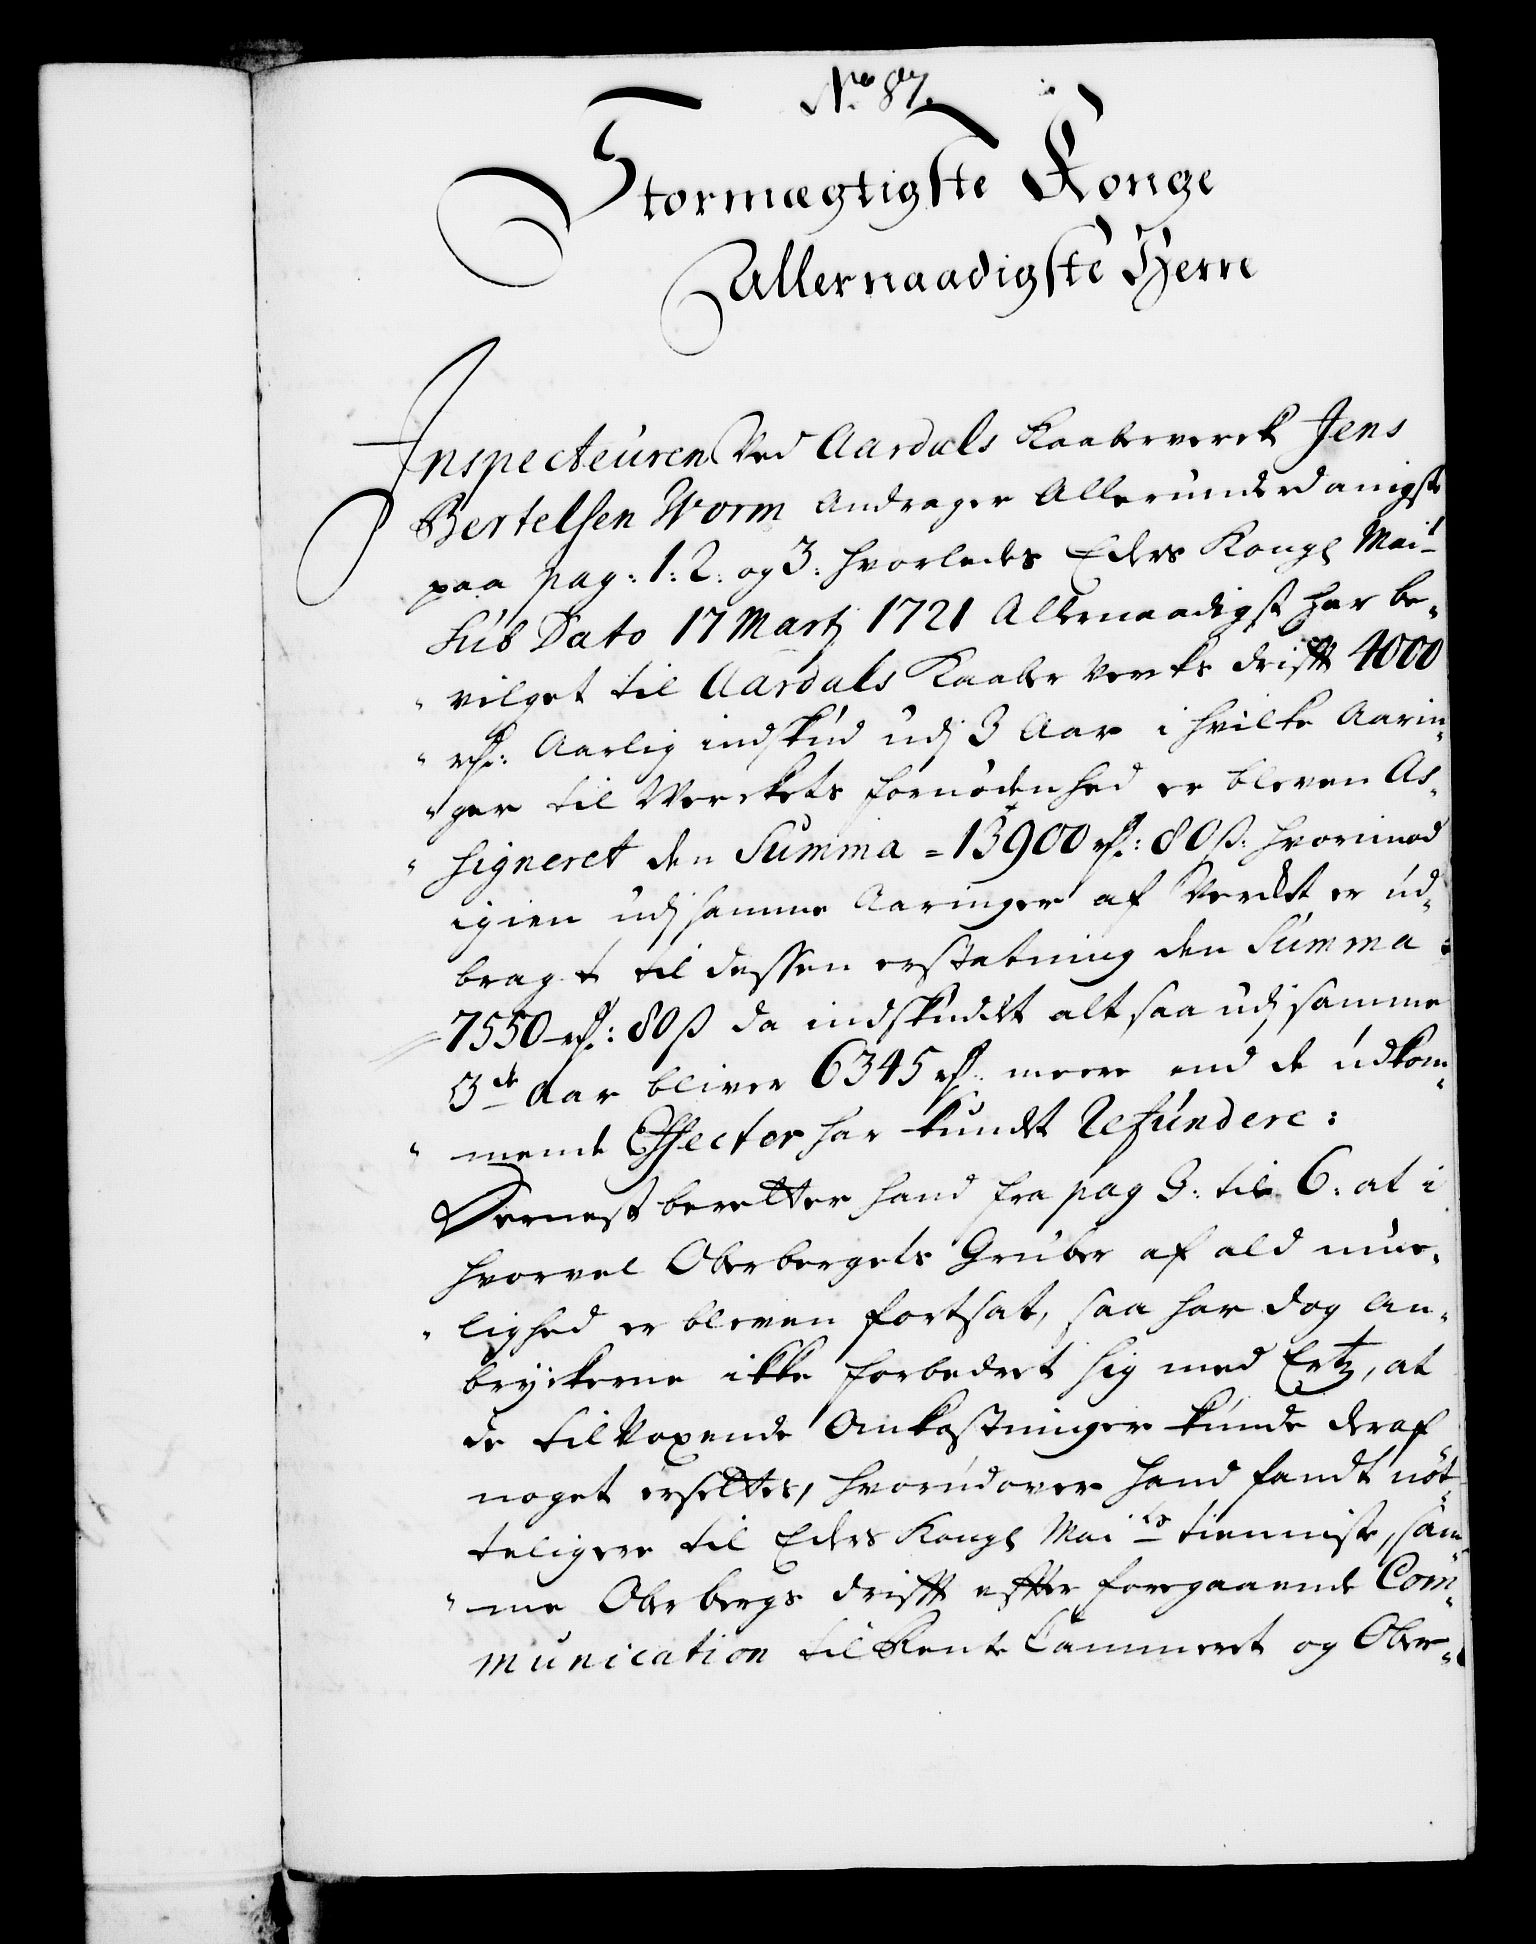 No 87.
Stormægtigste Konge
Allernaadigste Herre
Inspecteuren Ved Aardals Kaaberverck Jens
Bertelsen Worm Andrager Allerunderdanigst
paa pag: 1: 2: og 3: hvorledes Eders Kongl Mait
Sub Dato 17 Martj 1721 Allernaadigst har be„
„vilget til Aardals Kaaber Vercks drifft 4000
„rdr: Aarlig indskud udj 3 Aar i hvilke Aarin„
„ger til Verckets fornødenhed er bleven As„
„signeret den Summa = 13900 rdr: 80 ß: hvorimod
igien udj samme Aaringer af Verket er ud„
bragt til dessen erstatning den Summa =
7550 rdr: 80 ß da indskudet alt saa udj samme
3de Aar bliver 6345 rdr: meere end de udkom„
„mende Effecter har kundet Refundere:
Dernest beretter hand fra pag 3: til 6: at i
hvorvel Oberbergets Gruber af ald mue„
„lighed er bleven fortsat, saa har dog An„
bryckerne ikke forbedret sig med Ertz, at
de tilvoxende Omkostninger kunde deraf
noget ersettes, hvorudover hand fandt nöt„
teligere til Eders Kongl Maits tienniste, sam„
„me Oberbergs drifft effter foregaaende Com„
munication til Rente Cammeret og Ober„